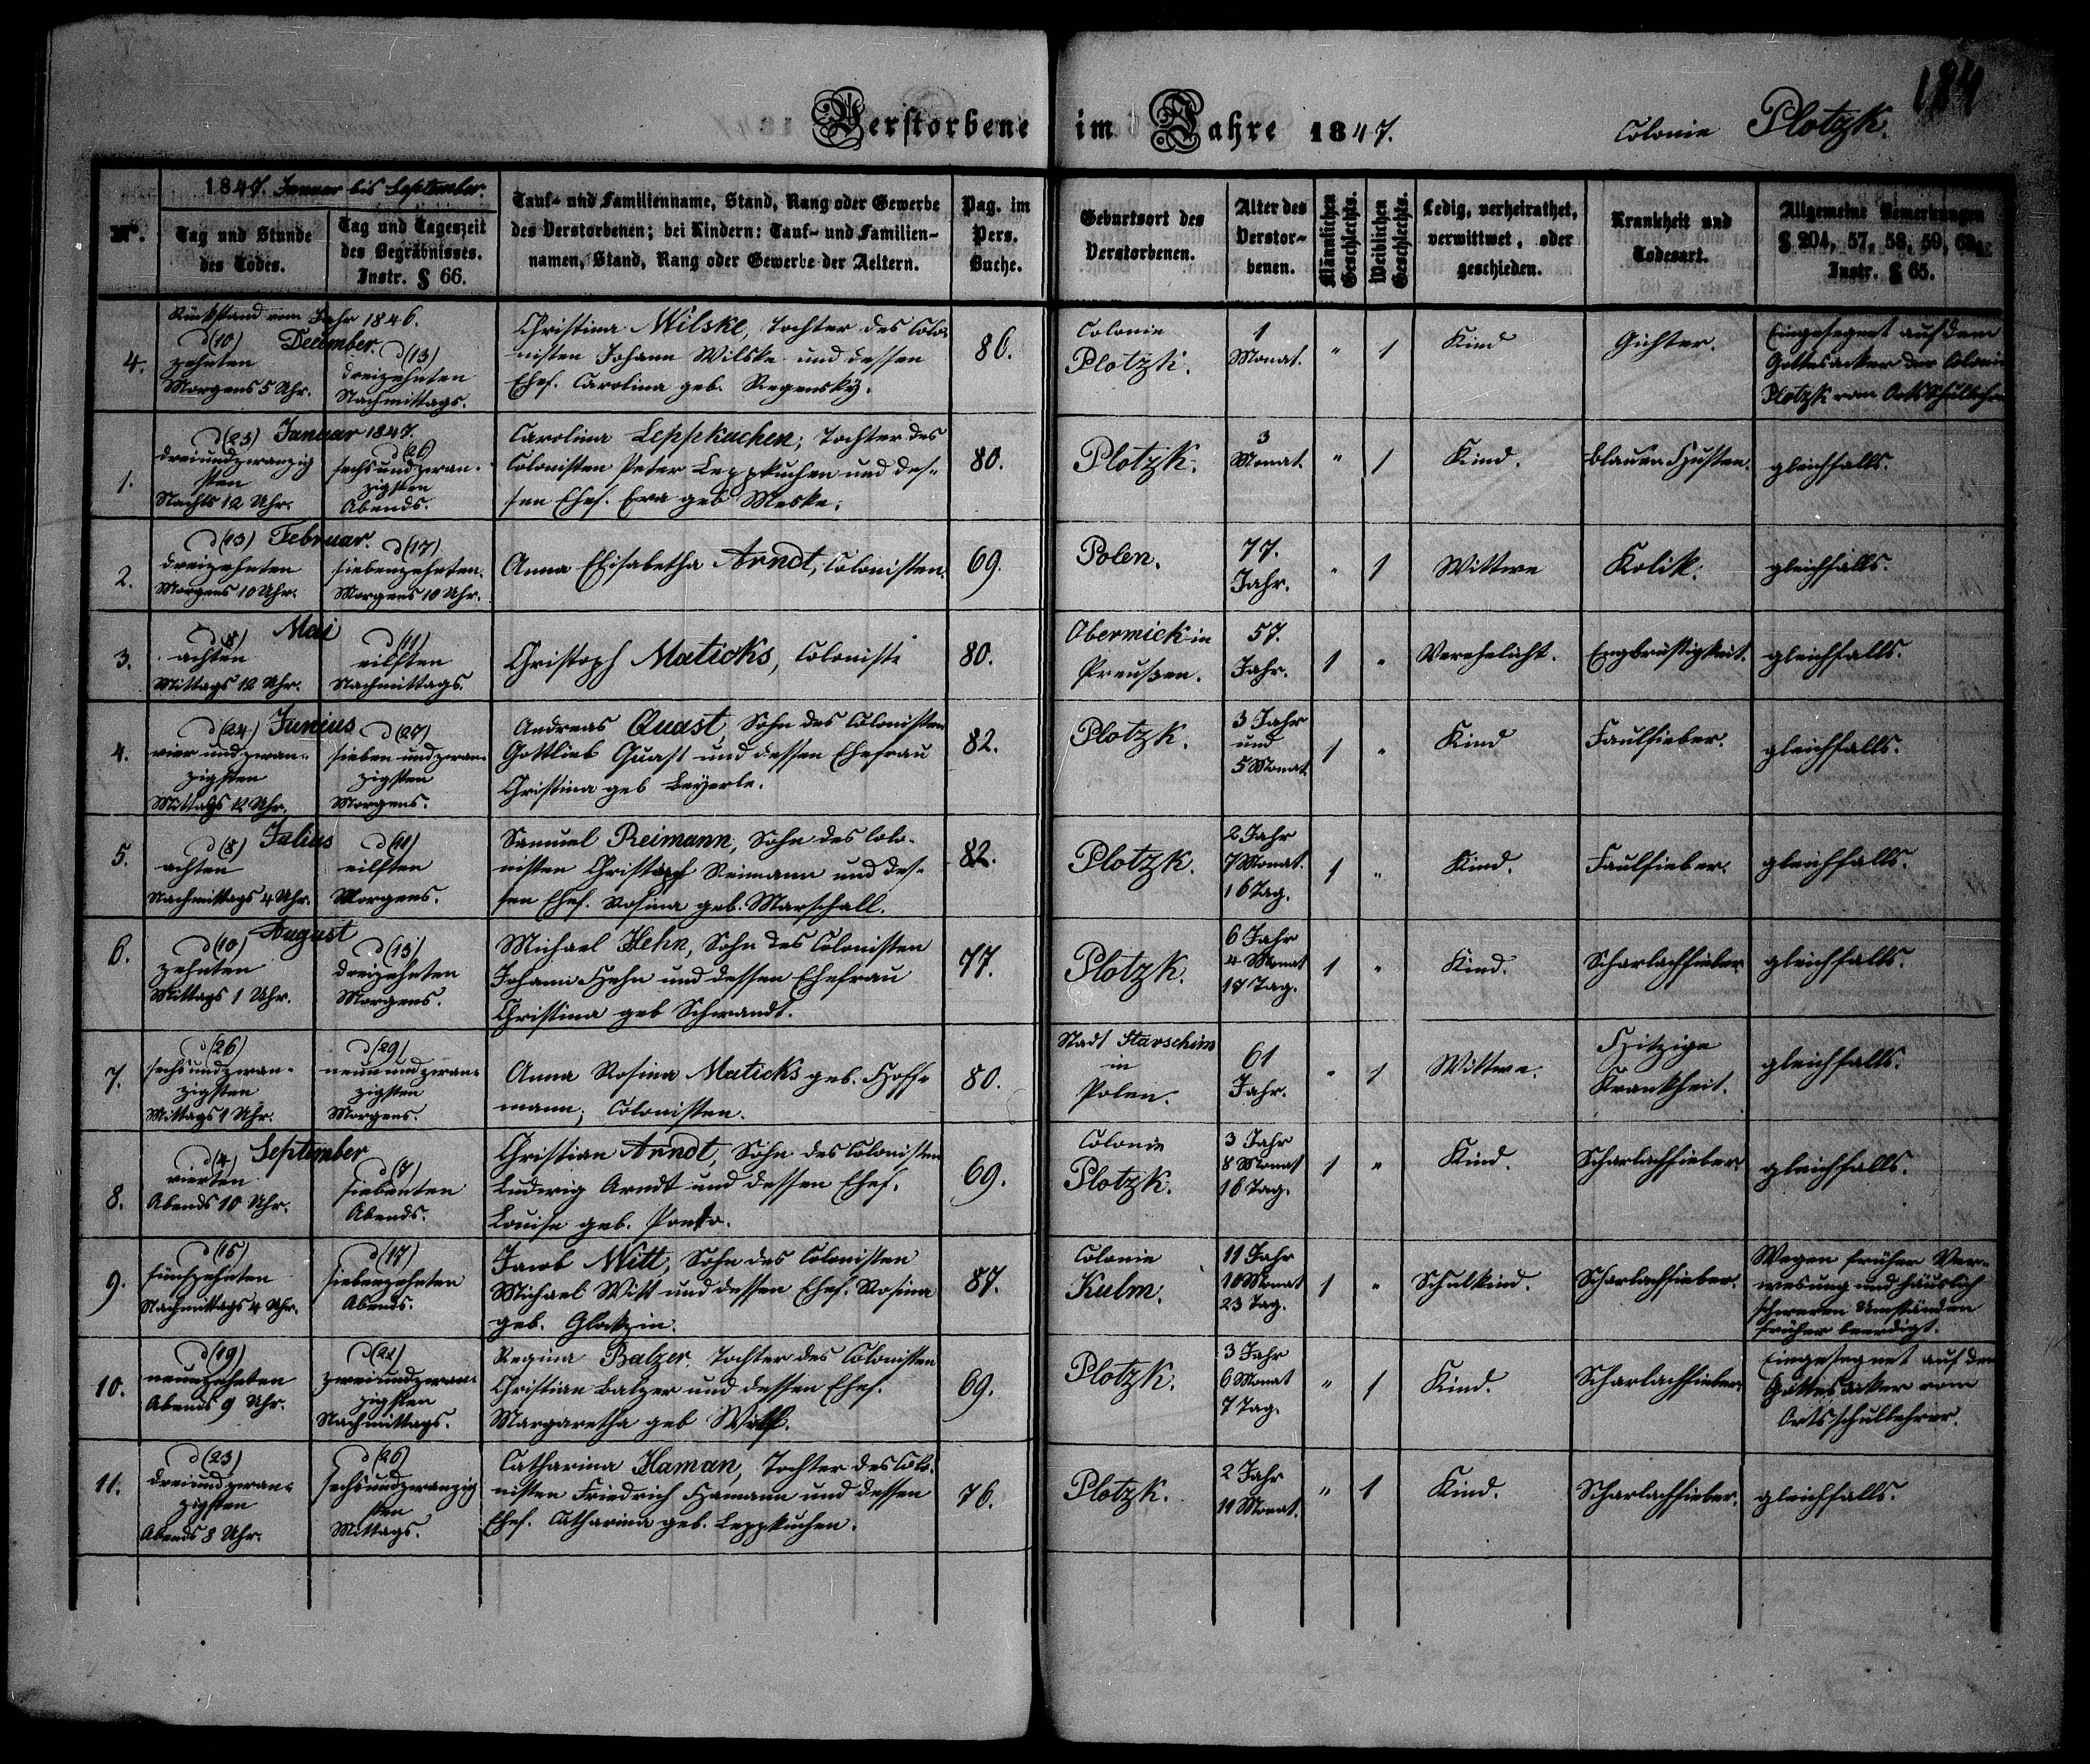 184
Verstorbene im Jahre 1847. Colonie Plotzk.
1847. Januar bis September.
No.
Tag und Stunde
des Todes.
Tag und Tageszeit
des Begräbnisses.
Instr. § 66.
Tauf- und Familienname, Stand, Rang oder Gewerbe
des Verstorbenen; bei Kindern: Tauf- und Familien-
namen, Stand, Rang oder Gewerbe der Aeltern.
Pag. im
Pers.
Buche.
Geburtsort des
Verstorbenen.
Alter des
Verstor-
benen.
Männlichen
Geschlechts.
Weiblichen
Geschlechts.
Ledig, verheirathet,
verwittwet, oder
geschieden.
Krankheit und
Todesart.
Allgemeine Bemerkungen
§ 204, 57, 58, 59,
Instr. § 65.
Rückstand vom Jahr 1846.
December.
4.
d (10)
zehnten
Morgens 5 Uhr.
d (13)
dreizehnten
Nachmittags.
Christina Wilske, Tochter des Colo-
nisten Johann Wilske und dessen
Ehef. Carolina geb. Regensky.
86.
Colonie
Plotzk.
1
Monat.
" 1
Kind
Gichter.
Eingesegnet auf dem
Gottesacker der Colonie
Plotzk vom Ortsschullehrer
Januar 1847.
1.
d (23)
dreiundzwanzig
sten
Nachts 12 Uhr.
d (26)
sechsundzwan-
zigsten
Abends.
Carolina Leppkuchen; Tochter des
Colonisten Peter Leppkuchen und des-
sen Ehef. Eva geb Meske.
80.
Plotzk.
3
Monat.
" 1
Kind.
blauen Husten.
gleichfalls.
Februar.
2.
d (13)
dreizehnten
Morgens 10 Uhr.
d (17)
siebenzehnten.
Morgens 10 Uhr.
Anna Elisabetha Arndt, Colonisten.
69.
Polen.
77.
Jahr.
" 1
Wittwe
Kolik.
gleichfalls.
Mai
3.
d (8)
achten
Mittags 12 Uhr.
d (11)
eilften
Nachmittags.
Christoph Maticks, Coloniste
80.
Obermick in
Preußen.
57.
Jahr.
1 "
Verehelicht.
Engbrüstigkeit.
gleichfalls.
Junius
4.
d (24)
vier undzwan-
zigsten
Mittags 12 Uhr.
d (27)
sieben undzwan-
zigsten
Morgens.
Andreas Quast, Sohn des Colonisten
Gottlieb Quast und dessen Ehefrau
Christina geb Beyerle.
82.
Plotzk.
3 Jahr
und
5 Monat.
1 "
Kind
Faulfieber.
gleichfalls.
Julius
5.
d (8)
achten
Nachmittags 4 Uhr.
d (11)
eilften
Morgens.
Samuel Reimann, Sohn des Colo-
nisten Christoph Reimann und des-
sen Ehef. Rosina geb. Marschall.
82.
Plotzk.
2 Jahr
7 Monat.
16 Tag.
1 "
Kind.
Faulfieber.
gleichfalls.
August
6.
d (10)
zehnten
Mittags 1 Uhr.
d (13)
dreizehnten
Morgens.
Michael Hehn, Sohn des Colonisten
Johann Hehn und dessen Ehefrau
Christina geb Schwandt.
77.
Plotzk.
6 Jahr
4 Monat
17 Tag.
1 "
Kind.
Scharlachfieber
gleichfalls.
7.
d (26)
sechsundzwan-
zigsten
Mittags 1 Uhr.
d (29)
neunundzwan-
zigsten
Morgens.
Anna Rosina Maticks geb. Hoff-
mann; Colonisten.
80.
Stadt Starschin
in
Polen.
61
Jahr.
" 1
Wittwe.
Hitzige
Krankheit.
gleichfalls.
September
8.
d (4)
vierten
Abends 10 Uhr.
d (7)
siebenten
Abends.
Christian Arndt, Sohn des Colonisten
Ludwig Arndt und dessen Ehef.
Louise geb.
69.
Colonie
Plotzk.
3 Jahr
8 Monat
16 Tag.
1 "
Kind.
Scharlachfieber
gleichfalls.
9.
d (15)
fünfzehnten
Nachmittags 4 Uhr.
d (17)
siebenzehnten
Abends.
Jacob Witt, Sohn des Colonisten
Michael Witt und dessen Ehef. Rosina
geb.
87.
Colonie
Kulm.
11 Jahr
10 Monat
23 Tag.
1 "
Schulkind.
Scharlachfieber.
Wegen früher Ver-
wesung und häuslich
schweren Umständen
früher beerdigt.
10.
d (19)
neunzehnten
Abends 9 Uhr.
d (22)
zweiundzwan-
zigsten
Nachmittags.
Regina Balzer, Tochter des Colonisten
Christian Balzer und dessen Ehef.
Margaretha geb
69.
Plotzk.
3 Jahr
6 Monat
7 Tag.
" 1
Kind.
Scharlachfieber.
Eingesegnet auf dem
Gottesacker vom
Ortsschullehrer.
11.
d (23)
dreiundzwan-
zigsten
Abends 8 Uhr.
d (26)
sechsundzwanzig
sten
Mittags.
Catharina Haman, Tochter des Colo-
nisten Friedrich Hamann und dessen
Ehef. Catharina geb. Leppkuchen.
76.
Plotzk.
2 Jahr
11 Monat.
" 1
Kind.
Scharlachfieber.
gleichfalls.